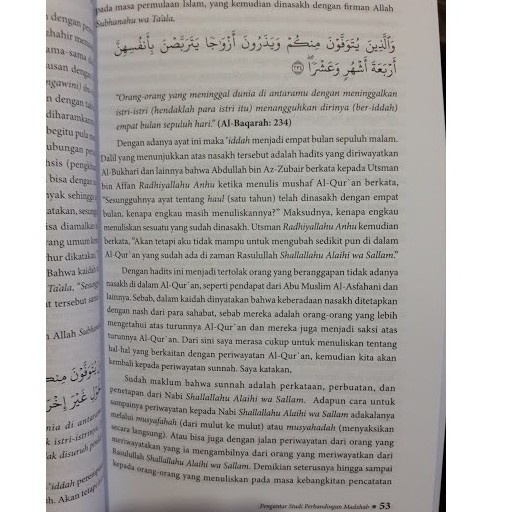 pada masa permulaan Islam, yang kemudian dinasakh dengan firman Allah
Subhanahu wa Ta'ala.
وَالَّذِينَ يُتَوَفَّوْنَ مِنكُمْ وَيَذَرُونَ أَزْوَاجًا يَتَرَبَّصْنَ بِأَنفُسِهِنَّ
أَرْبَعَةَ أَشْهُرٍ وَعَشْرًا ۖ ﴿٢٣٤﴾
"Orang-orang yang meninggal dunia di antaramu dengan meninggalkan
istri-istri (hendaklah para istri itu) menangguhkan dirinya (ber-iddah)
empat bulan sepuluh hari." (Al-Baqarah: 234)
Dengan adanya ayat ini maka 'iddah menjadi empat bulan sepuluh malam.
Dalil yang menunjukkan atas nasakh tersebut adalah hadits yang diriwayatkan
Al-Bukhari dan lainnya bahwa Abdullah bin Az-Zubair berkata kepada Utsman
bin Affan Radhiyallahu Anhu ketika menulis mushaf Al-Qur`an berkata,
"Sesungguhnya ayat tentang haul (satu tahun) telah dinasakh dengan empat
bulan, kenapa engkau masih menuliskannya?" Maksudnya, kenapa engkau
menuliskan sesuatu yang sudah dinasakh. Utsman Radhiyallahu Anhu kemudian
berkata, "Akan tetapi aku tidak mampu untuk mengubah sedikit pun di dalam
Al-Qur`an yang sudah ada di zaman Rasulullah Shallallahu Alaihi wa Sallam."
Dengan hadits ini menjadi tertolak orang yang beranggapan tidak adanya
nasakh di dalam Al-Qur`an, seperti pendapat dari Abu Muslim Al-Asfahani dan
lainnya. Sebab, dalam kaidah dinyatakan bahwa keberadaan nasakh ditetapkan
dengan nash dari para sahabat, sebab mereka adalah orang-orang yang lebih
mengetahui atas turunnya Al-Qur`an dan mereka juga menjadi saksi atas
turunnya Al-Qur`an. Dari sini saya merasa cukup untuk menuliskan tentang
hal-hal yang berkaitan dengan periwayatan Al-Qur`an, kemudian kita akan
kembali kepada periwayatan sunnah. Saya katakan,
Sudah maklum bahwa sunnah adalah perkataan, perbuatan, dan
penetapan dari Nabi Shallallahu Alaihi wa Sallam. Adapun cara untuk
sampainya periwayatan kepada Nabi Shallallahu Alaihi wa Sallam adakalanya
melalui musyafahah (dari mulut ke mulut) atau musyahadah (menyaksikan
secara langsung). Atau bisa juga dengan jalan periwayatan dari orang yang
meriwayatkan yang ia mengambilnya dari orang yang meriwayatkan dari
Rasulullah Shallallahu Alaihi wa Sallam. Demikian seterusnya hingga sampai
kepada orang-orang yang menuliskan pada masa kebangkitan pencatatan
Pengantar Studi Perbandingan Madzhab • 53